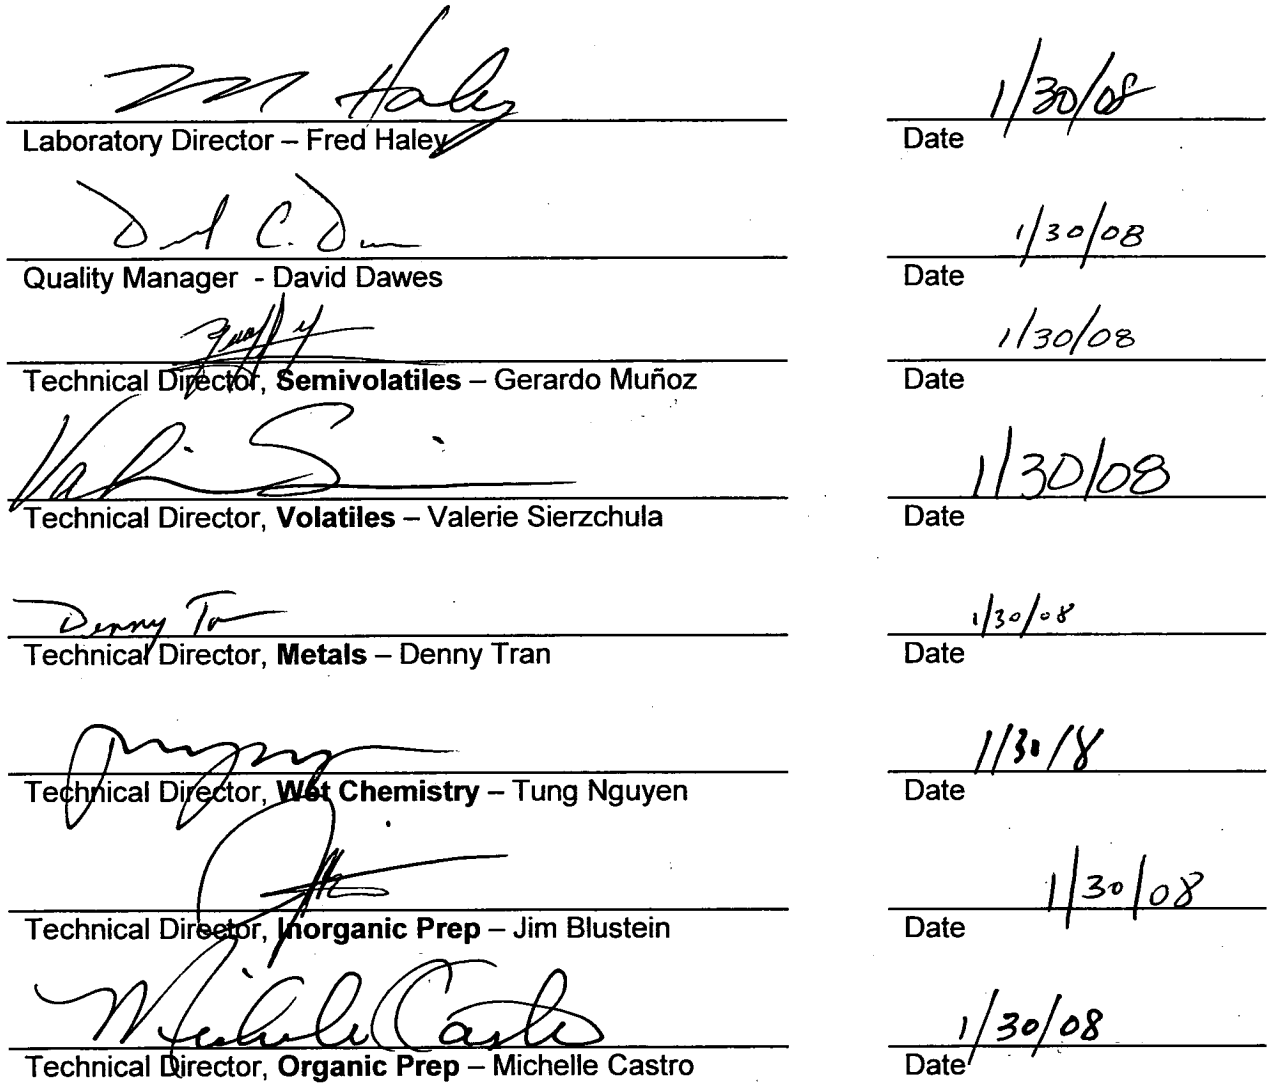 M Haley 1/30/08
Laboratory Director – Fred Haley Date
C. 1/30/08
Quality Manager - David Dawes Date
1/30/08
Technical Director, Semivolatiles – Gerardo Muñoz Date
1/30/08
Technical Director, Volatiles – Valerie Sierzchula Date
Denny 1/30/08
Technical Director, Metals – Denny Tran Date
1/30/8
Technical Director, Wet Chemistry – Tung Nguyen Date
1/30/08
Technical Director, Inorganic Prep – Jim Blustein Date
Michele Castro 1/30/08
Technical Director, Organic Prep – Michelle Castro Date